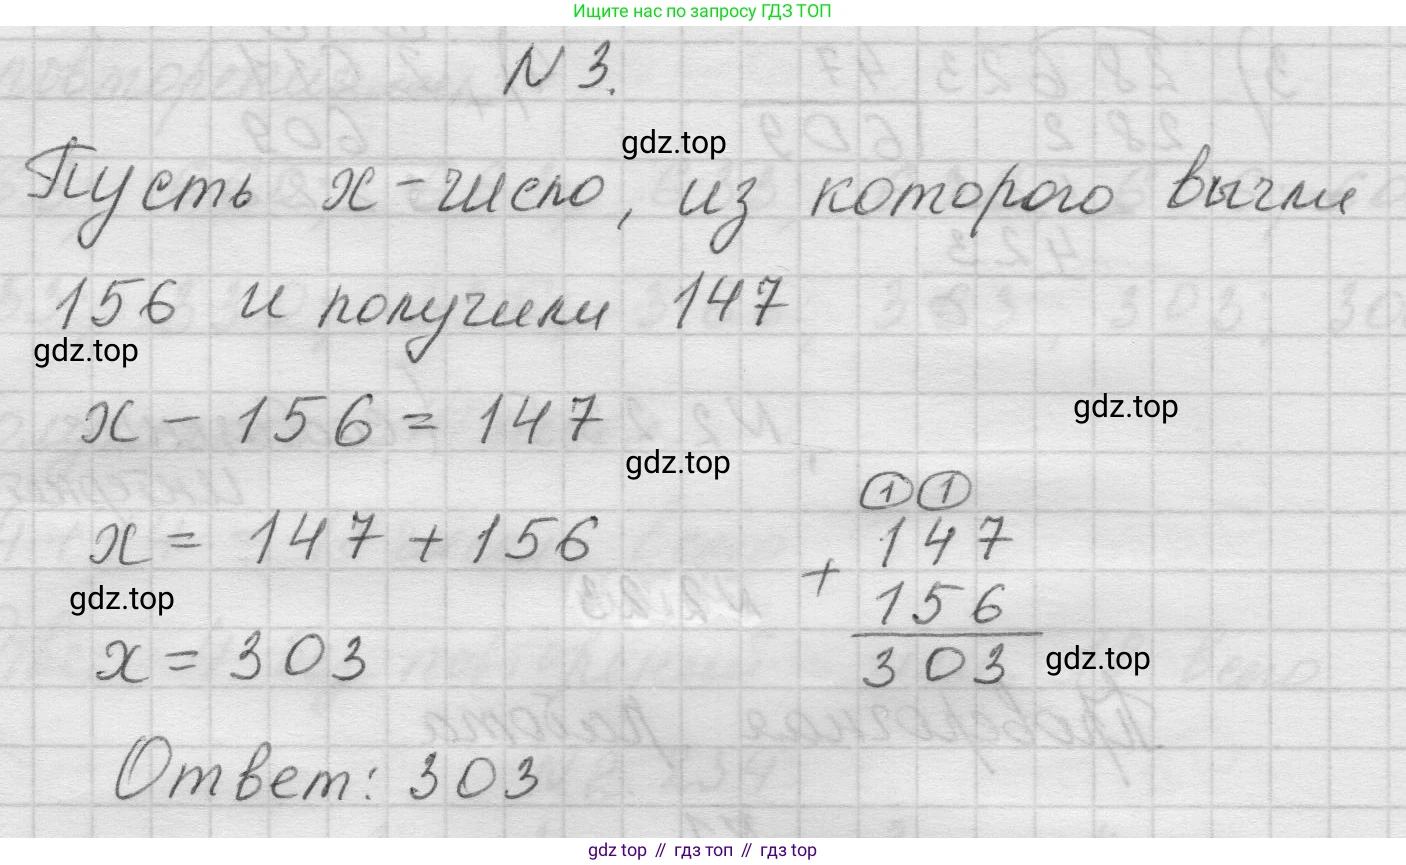 Ищите нас по запросу ГДЗ ТОП
N 3.
gdz.top
Пусть x - число, из которого вычли
156 и получили 147
gdz.top
x - 156 = 147
gdz.top
gdz.top
1 1
x = 147 + 156
147
+
156
gdz.top
303
x = 303
gdz.top
Ответ: 303
gdz top // гдз топ // gdz top